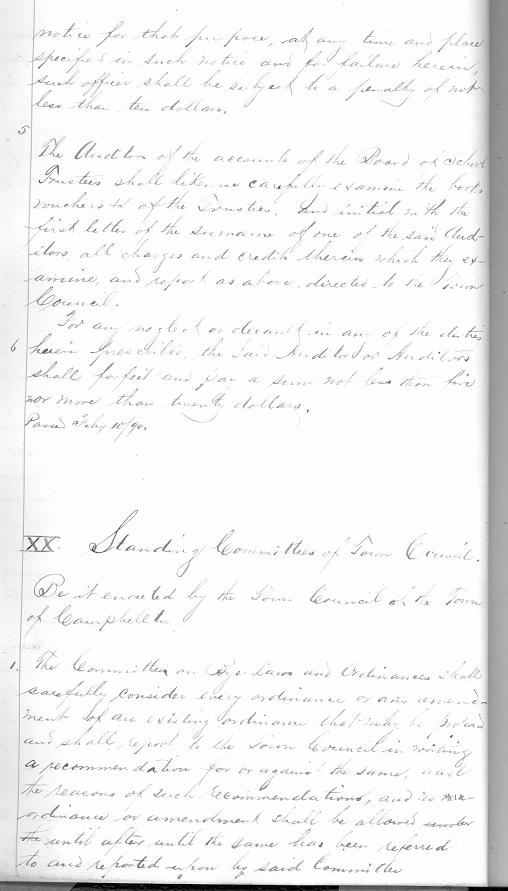 notice for that purpose, at any time and place
specified in such notice, and for failure herein,
such officer shall be subject to a penalty of not
less than ten dollars.
5
The Auditors of the accounts of the Board of School
Trustees shall likewise carefully examine the books
vouchers &c of the Trustees, and initial with the
first letter of the surname of one of the said Aud-
itors, all charges and credits therein which they ex-
amine, and report as above directed to the Town
Council.
For any neglect or default in any of the duties
6 herein prescribed, the said Auditor or Auditors
shall forfeit and pay a sum not less than five
nor more than twenty dollars.
Passed Feby 10/90.
XX. Standing Committees of Town Council.
Be it enacted by the Town Council of the Town
of Campbellton
1. The Committee on Bye-Laws and Ordinances shall
carefully consider every ordinance or any amend-
ment of an existing ordinance that may be
and shall report to the Town Council in writing
a recommendation for or against the same, and
the reasons of such recommendations, and no
ordinance or amendment shall be allowed under
the until after until the same has been referred
to and reported upon by said Committee